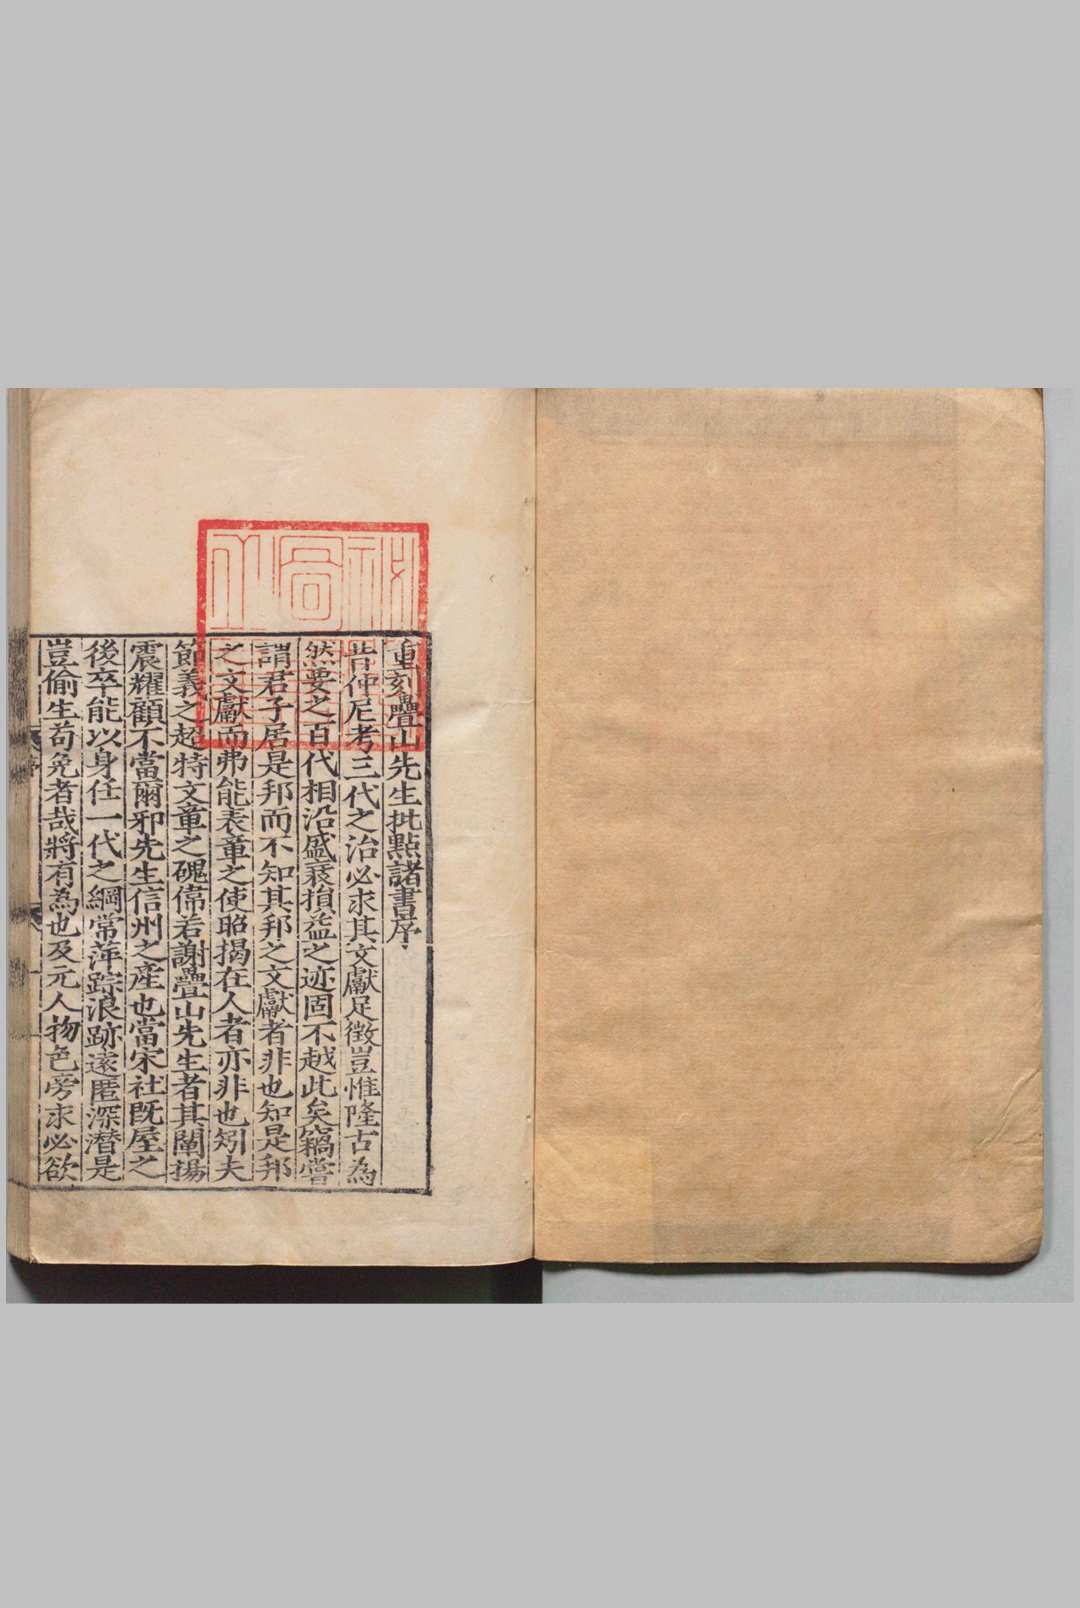 重刻疊山先生批點諸書序
昔仲尼考三代之治必求其文獻足徵豈惟隆古為
然要之百代相沿盛衰損益之迹固不越此矣竊嘗
謂君子居是邦而不知其邦之文獻者非也知是邦
之文獻而弗能表章之使昭揭在人者亦非也矧夫
節義之超特文章之磈偉若謝疊山先生者其闡揚
震耀顧不當爾邪先生信州之產也當宋社既屋之
後卒能以身任一代之綱常萍踪浪跡遠匿深潛是
豈偷生苟免者哉將有為也及元人物色旁求必欲